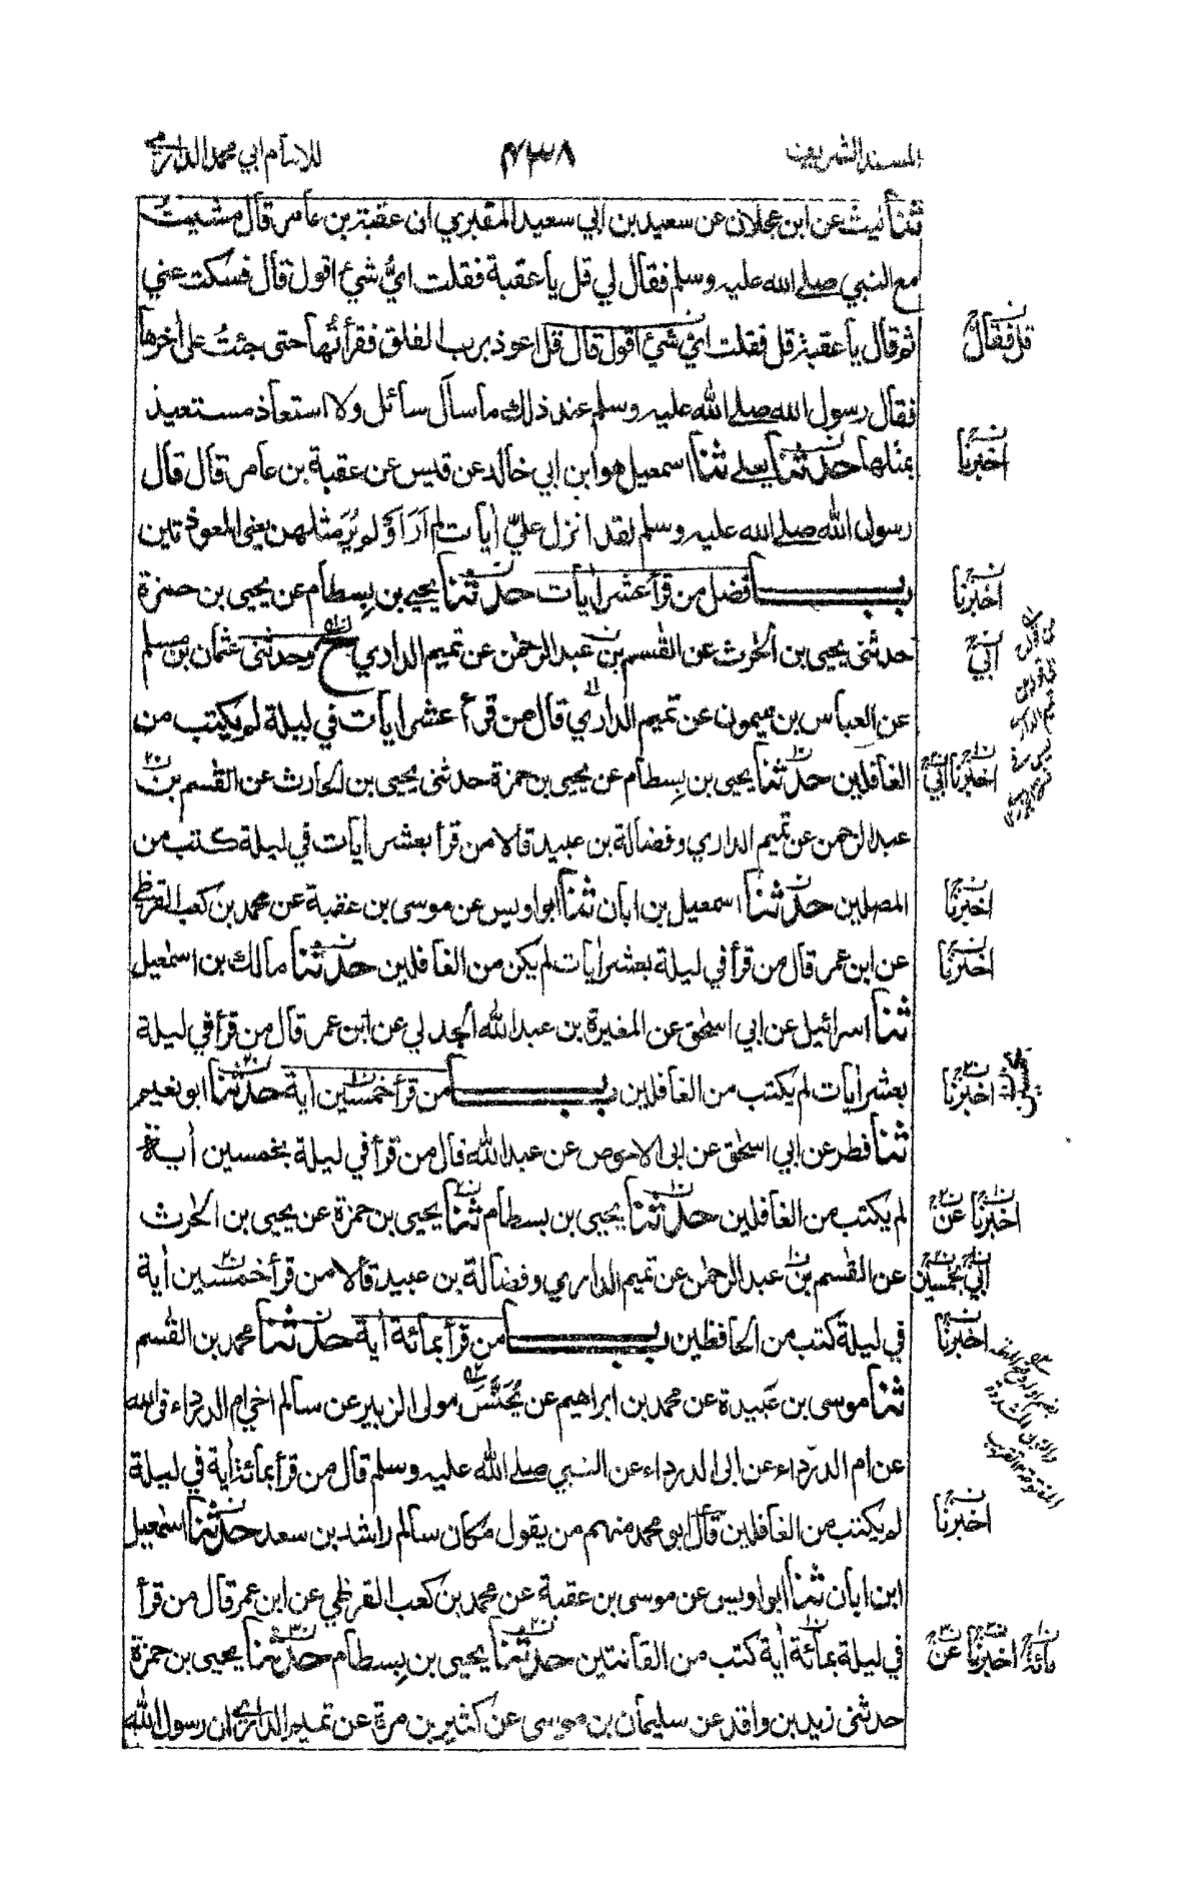 المسند الشريف ۴۳۸ للامام ابي محمد الدارمي
ثنا ليث عن ابن عجلان عن سعيد بن ابي سعيد المقبري ان عقبة بن عامر قال مشيت
مع النبي صلى الله عليه وسلم فقال لي قل يا عقبة فقلت ايُّ شئ اقول قال فسكت عني
ثم قال يا عقبة قل فقلت ايُّ شئ اقول قال قل اعوذ برب الفلق فقرأتُها حتى جئتُ على اٰخرها
قل فقال
فقال رسول الله صلى الله عليه وسلم عند ذلك ما سأل سائل ولا استعاذ مستعيذ
بمثلها حدثنا يعلى ثنا اسمعيل هو ابن ابي خالد عن قيس عن عقبة بن عامر قال قال
اخبرنا
رسول الله صلى الله عليه وسلم لقد انزل عليّ اٰيات لم اَرَ اَوْ لم يُرَ مثلهن يعني المعوذتين
باب فضل من قرأ عشر اٰيات حدثنا يحيى بن بِسطام عن يحيى بن حمزة
اخبرنا
حدثنى يحيى بن الحٰرث عن القٰسم بن عبد الرحمٰن عن تميم الداري ح وحدثنى عثمان بن مسلم
ابي
عن العباس بن ميمون عن تميم الداري قال من قرأ عشر اٰيات في ليلة لم يكتب من
الغافلين حدثنا يحيى بن بِسطام عن يحيى بن حمزة حدثنى يحيى بن الحارث عن القٰسم بن
اخبرنا ابي
عبد الرحمن عن تميم الداري وفضالة بن عبيد قالا من قرأ بعشر اٰيات في ليلة كتب من
المصلين حدثنا اسمعيل بن ابان ثنا ابو اويس عن موسى بن عقبة عن محمد بن كعب القرظي
اخبرنا
عن ابن عمر قال من قرأ في ليلة بعشر اٰيات لم يكن من الغافلين حدثنا مالك بن اسمٰعيل
اخبرنا
ثنا اسرائيل عن ابي اسحٰق عن المغيرة بن عبد الله الجدلي عن ابن عمر قال من قرأ في ليلة
بعشر اٰيات لم يكتب من الغافلين باب من قرأ خمسين اٰية حدثنا ابو نعيم
اخبرنا
ثنا فطر عن ابي اسحٰق عن ابى الاحوص عن عبد الله قال من قرأ في ليلة بخمسين اٰية
لم يكتب من الغافلين حدثنا يحيى بن بسطام ثنا يحيى بن حمزة عن يحيى بن الحٰرث
اخبرنا عن
عن القٰسم بن عبد الرحمٰن عن تميم الداري وفضالة بن عبيد قالا من قرأ خمسين اٰية
ابي بخمسين
في ليلة كتب من الحافظين باب من قرأ بمائة اٰية حدثنا محمد بن القٰسم
اخبرنا
ثنا موسى بن عَبيدة عن محمد بن ابراهيم عن يُحَنَّس مولى الزبير عن سالم اخي ام الدرداء في الله
عن ام الدرداء عن ابى الدرداء عن النبي صلى الله عليه وسلم قال من قرأ بمائة اٰية في ليلة
لم يكتب من الغافلين قال ابو محمد منهم من يقول مكان سالم راشد بن سعد حدثنا اسمٰعيل
اخبرنا
ابن ابان ثنا ابو اويس عن موسى بن عقبة عن محمد بن كعب القرظي عن ابن عمر قال من قرأ
في ليلة بمائة اٰية كتب من القانتين حدثنا يحيى بن بِسطام حدثنا يحيى بن حمزة
مائة اخبرنا عن
حدثنى زيد بن واقد عن سليمان بن موسى عن كثير بن مرة عن تميم الداري ان رسول الله